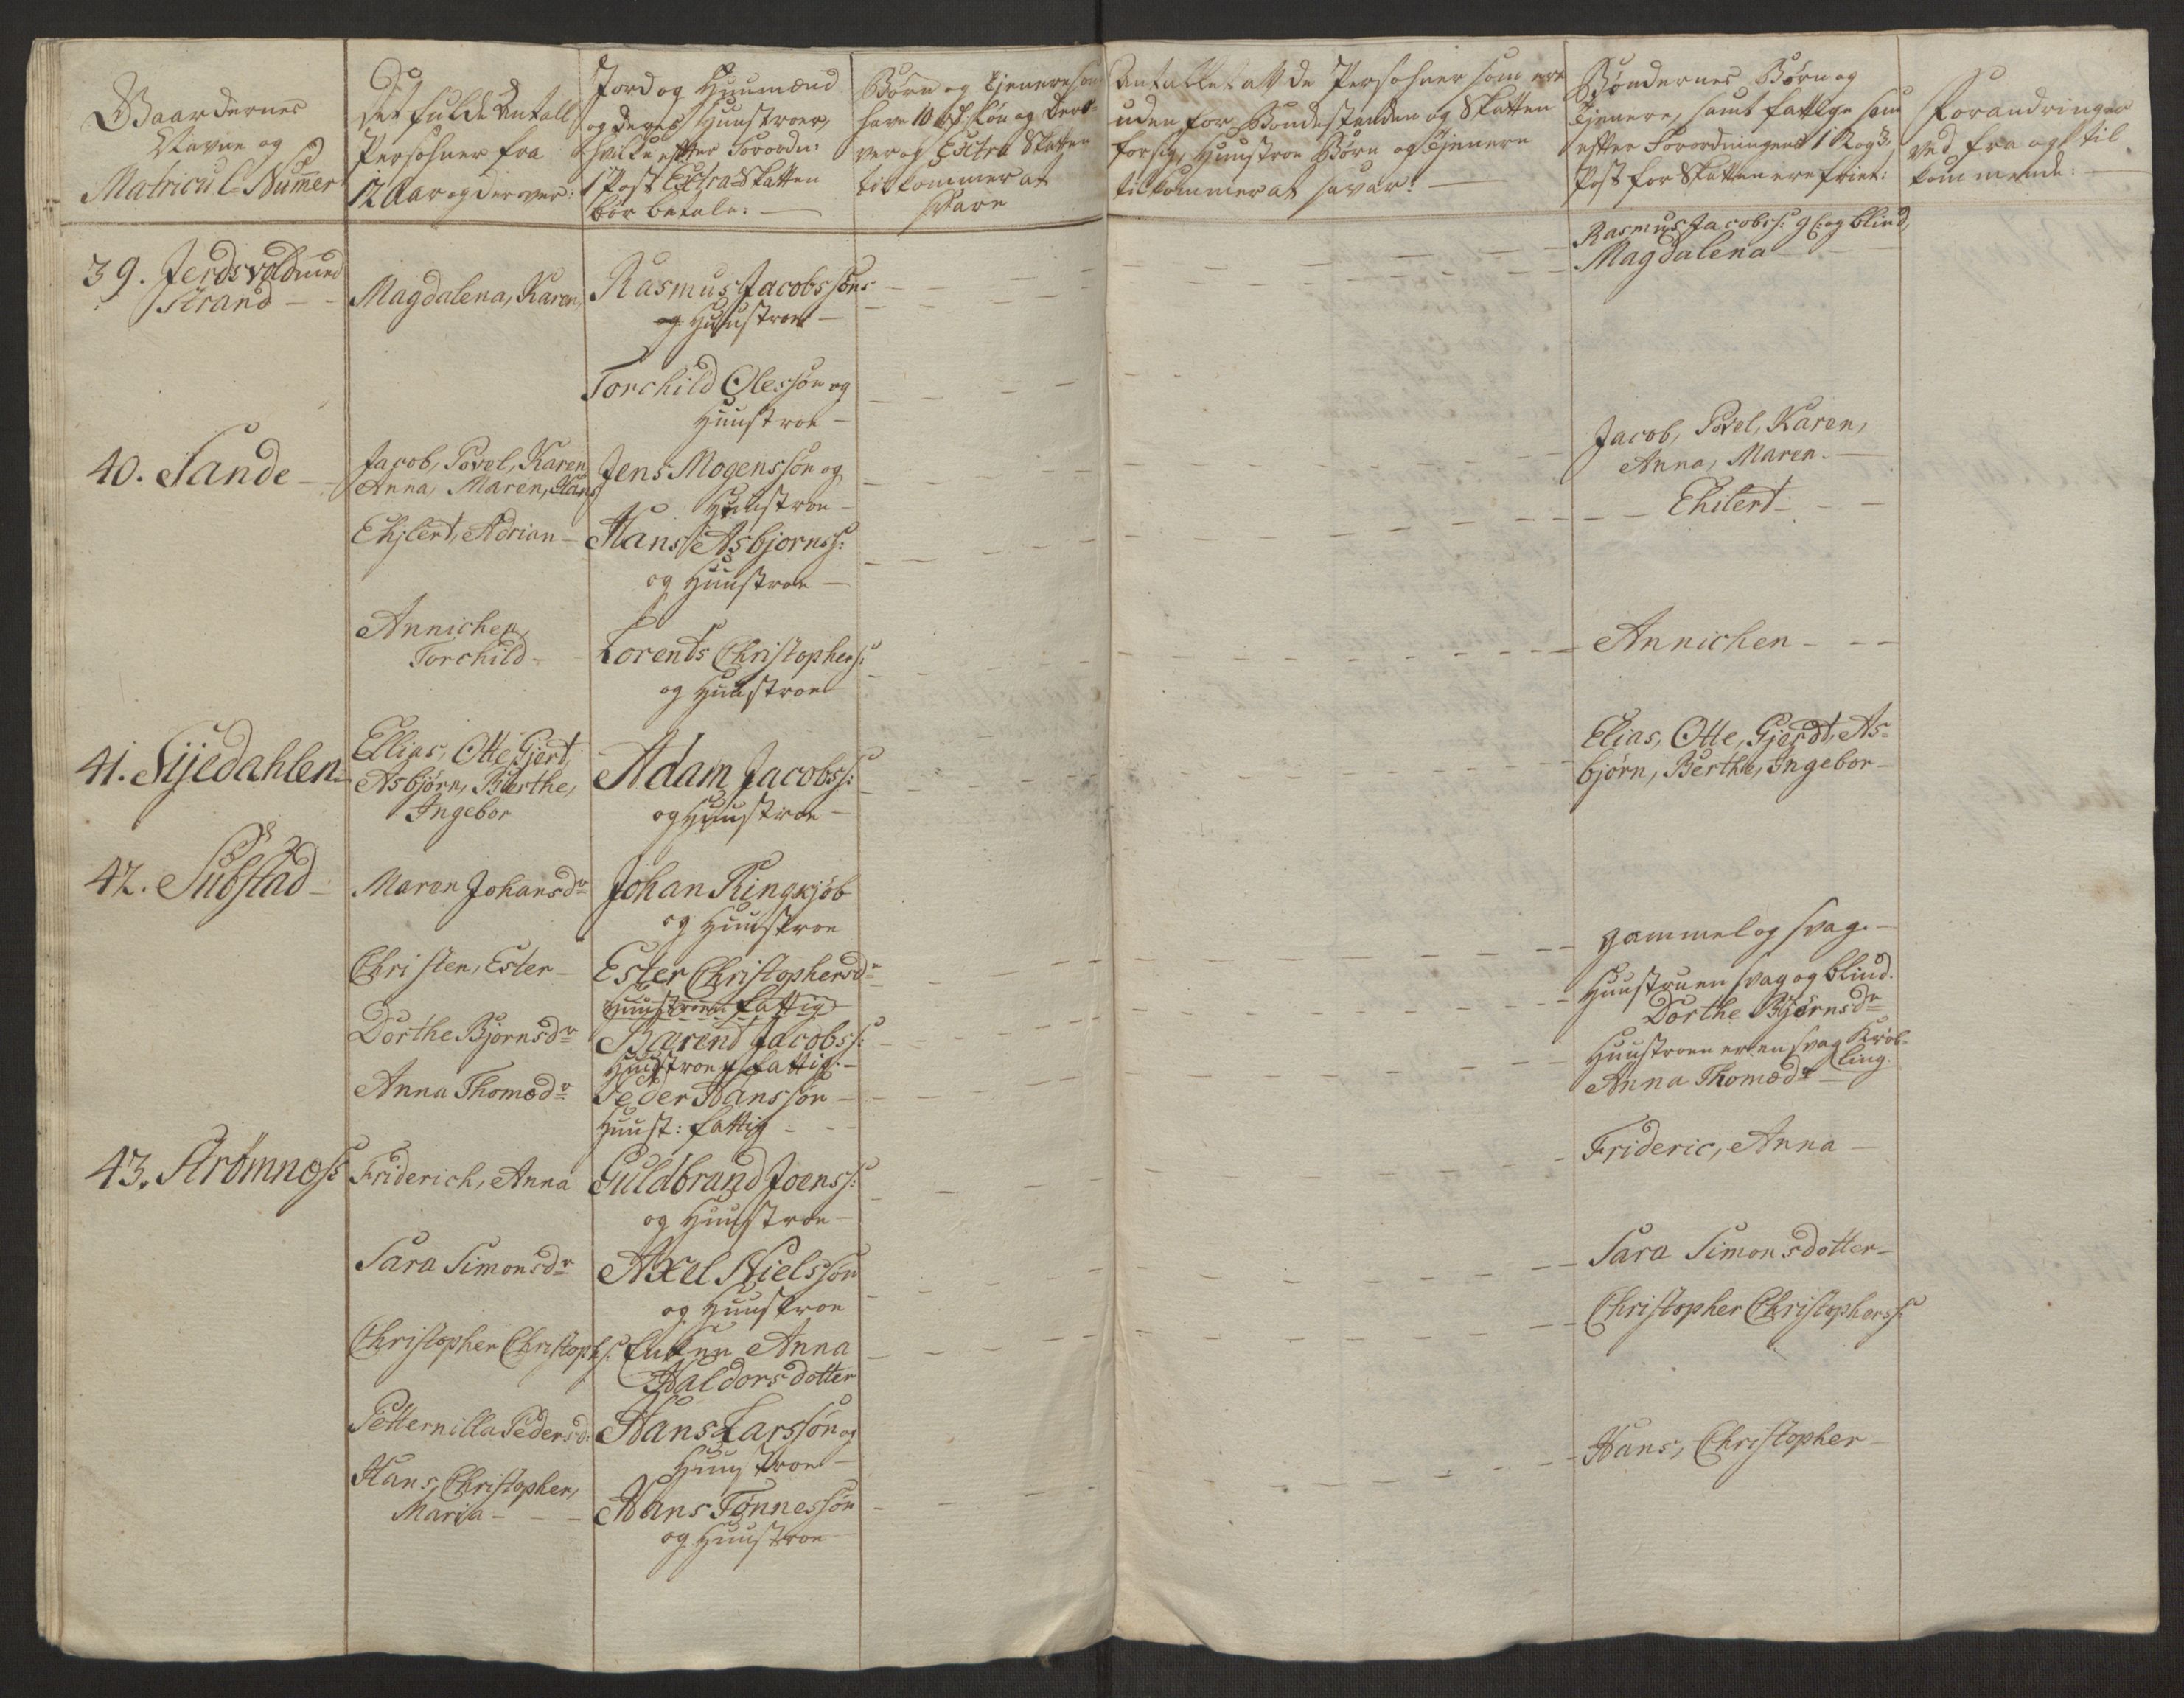 Gaardernes
Navne og
Matricul Nummer
Det fulde Antall
Persohner fra
12 Aar og derover:
Jord og Huusmænd
og deres Huustroer,
hvilke efter Forordn:
1 Post Extra Skatten
bør betale: —
Børn og Tienere som
have 10 rd Løn og der-
over og Extra Skatten
tilkommer at
svare
Antallet av de Persohner som ere
uden for Bondestanden og Skatten
for sig, Huustroe Børn og Tienere
tilkommer at svar: —
Bøndernes Børn og
Tienere, samt fattige som
efter Forordningens 1 og 3
Post for Skatten ere friet:
Forandringer
ved fra og til
kommende: —
39. Jerdsvold med
Strand — -
Magdalena, Karen,
Rasmus Jacobssøns
og Huustroe —
Rasmus Jacobss: gl: og blind,
Magdalena —
Torchild Olessøn og
Huustroe —
40. Sande —
Jacob, Povel, Karen
Anna, Maren, Hans
Jens Mogenssøn og
Huustroe —
Jacob, Povel, Karen,
Anna, Maren. —
Ehlert, Adrian —
Hans Asbjornss:
og Huustroe —
Ehlert — - -
Annichen,
Torchild -
Lorents Christophers:
og Huustroe
Annichen - - -
41. Sijedahlen -
Ellias, Otte, Gjert,
Asbjørn, Berthe,
Ingebor
Adam Jacobss:
og Huustroe —
Elias, Otte, Gjerdt, As-
bjørn, Berthe, Ingebor —
42. Substad —
Maren Johansdr
Johan Ringkjøb
og Huustroe
gammel og svag. —
Christen, Ester —
Ester Christophersdr
Huustroen fattig
Huustruen svag og blind.
Dorthe Bjornsdr
Barend Jacobss:
Huustroen fattig. —
Dorthe Bjørnsdr
Huustroen er en svag Krøb-
ling.
Anna Thomædr
Peder Hanssøn —
Huust: fattig - - -
Anna Thomædr
43. Strømnæs
Friderich, Anna
Guldbrand Joenss:
og Huustroe —
Frideric, Anna —
Sara Simonsdr
Axel Nielssøn
og Huustroe
Sara Simonsdotter —
Christopher Christophs:
Enken Anna
Haldorsdotter
Christopher Christopherss:
Petternilla Pedersd:
Hans Larssøn og
Huustroe —
Hans, Christopher,
Maria - - -
Hans Tønnessøn
og Huustroe —
Hans, Christopher —